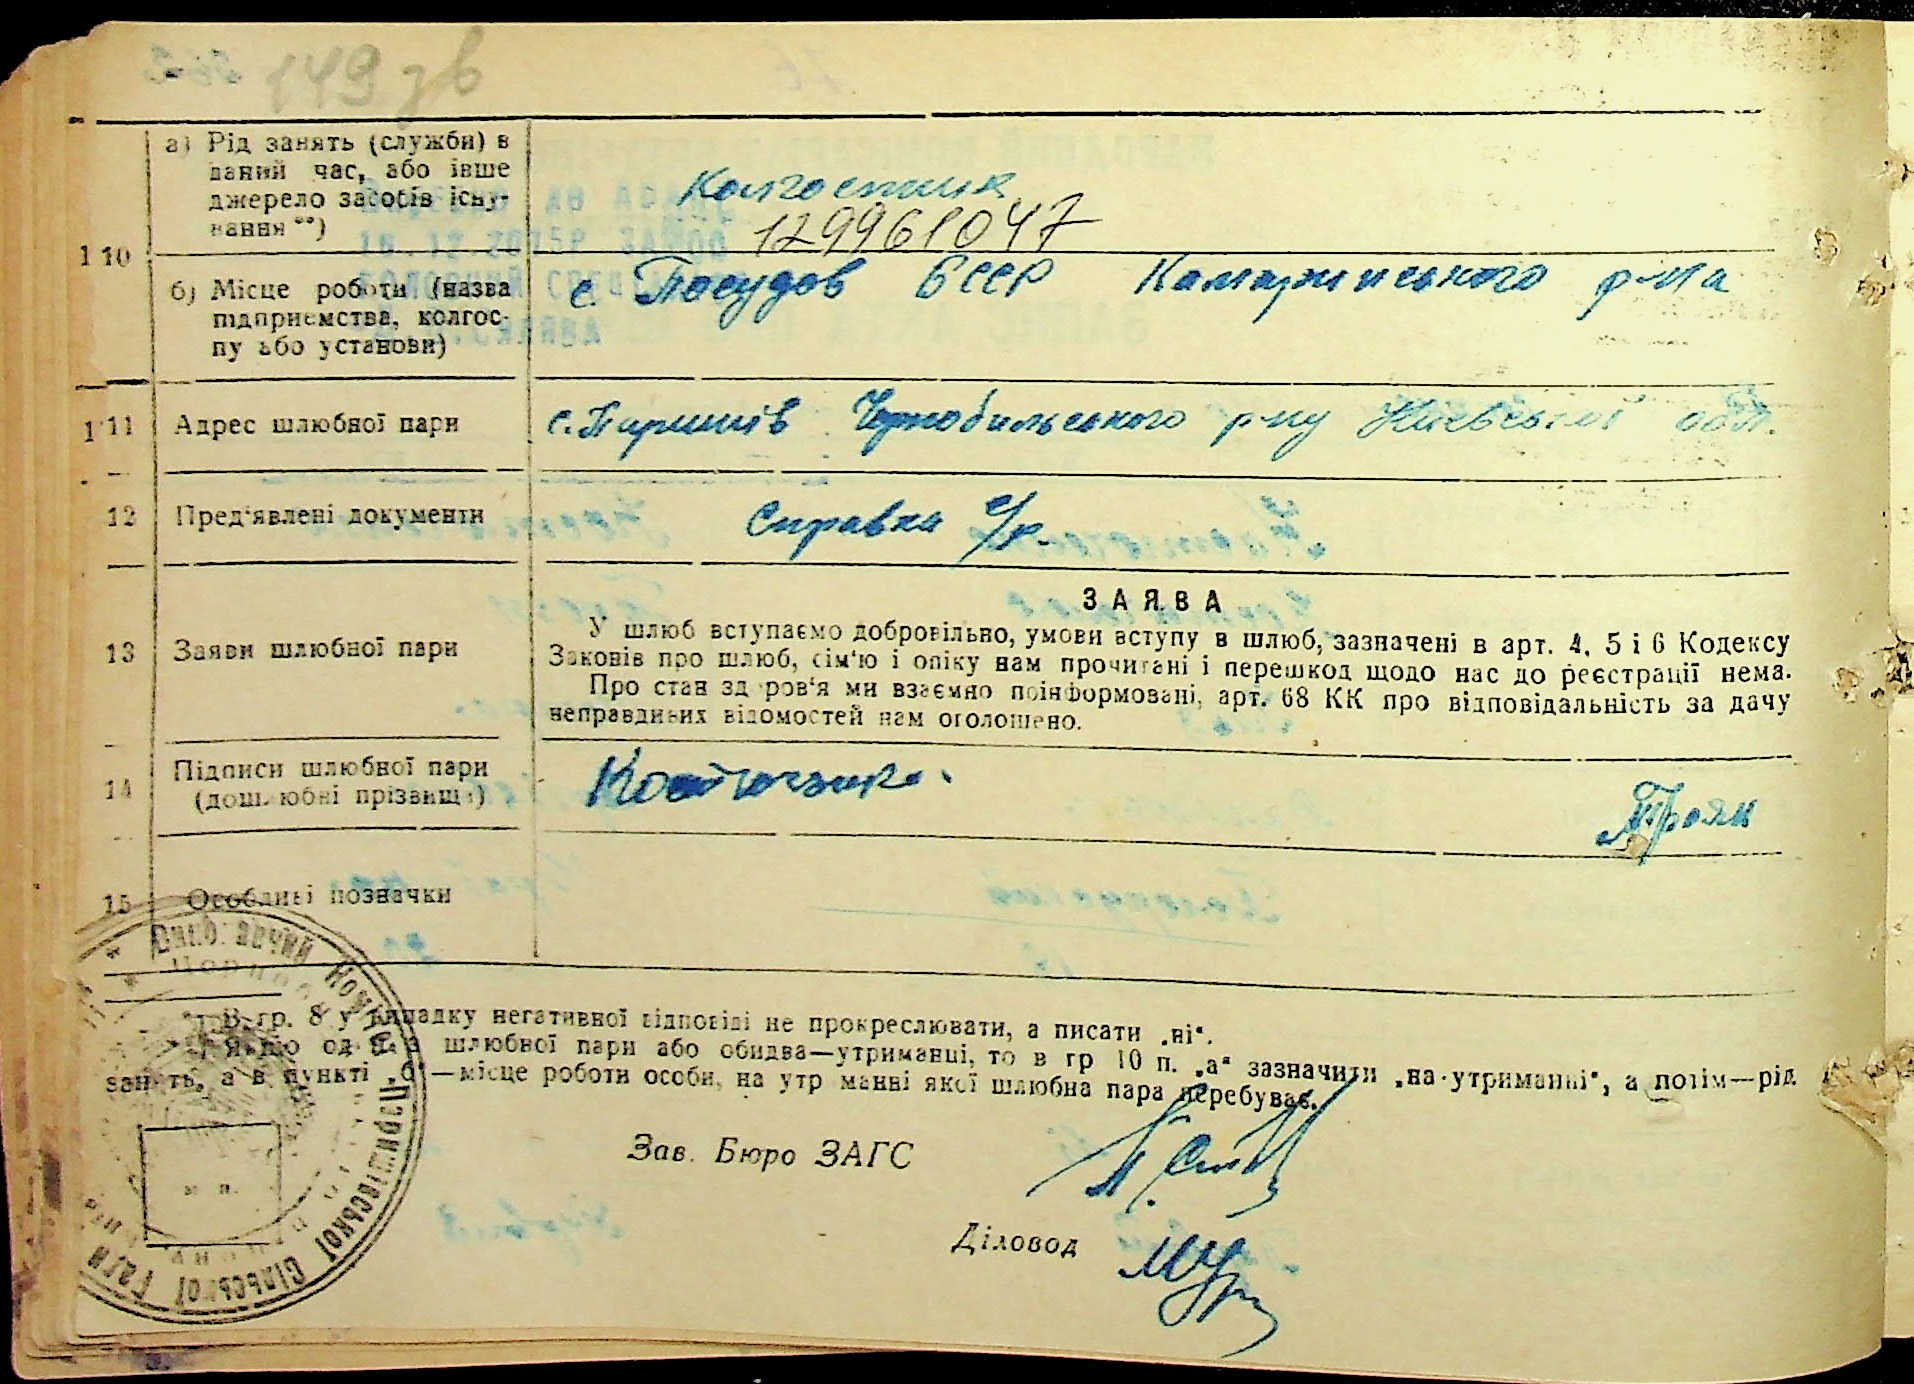 149 зв
а) Рід занять (служби) в
даний час, або інше
джерело засобів існу-
вання **)
Колгоспник
129961047
10
б) Місце роботи (назва
підприємства, колгос-
пу або установи)
с. Посудов БССР Комаринського р-на
11 Адрес шлюбної пари
с. Паришів Чорнобильського р-ну Київської обл.
12 Пред'явлені документи
Справка с/р.
13 Заяви шлюбної пари
ЗАЯВА
У шлюб вступаємо добровільно, умови вступу в шлюб, зазначені в арт. 4, 5 і 6 Кодексу
Законів про шлюб, сім'ю і опіку нам прочитані і перешкод щодо нас до реєстрації нема.
Про стан здоров'я ми взаємно поінформовані, арт. 68 КК про відповідальність за дачу
неправдивих відомостей нам оголошено.
14 Підписи шлюбної пари
(дошлюбні прізвища)
Троян
15 Особливі позначки
*) В гр. 8 у випадку негативної відповіді не прокреслювати, а писати „ні“.
Якщо один з шлюбної пари або обидва—утриманці, то в гр 10 п. „а“ зазначити „на утриманні“, а потім—рід
занять, а в пункті „б“—місце роботи особи, на утриманні якої шлюбна пара перебуває.
Зав. Бюро ЗАГС
Діловод
Виконавчий Комітет Паришівської Сільської Ради
м. п.